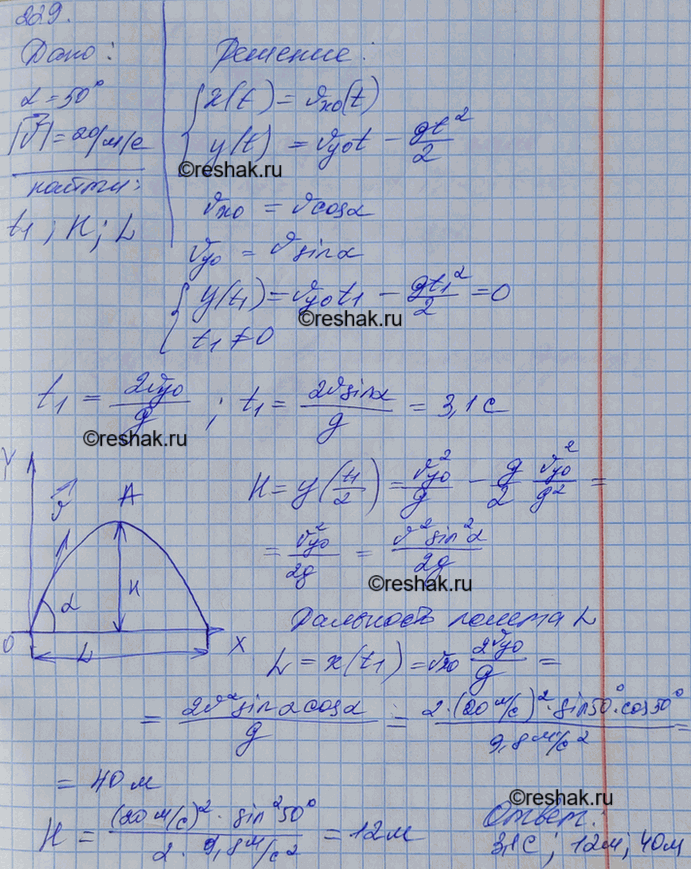 229.
Дано:
α = 50°
|v⃗| = 20 м/с
найти:
t₁; H; L
Решение:
x(t) = vₓ₀(t)
y(t) = v_y0 t − gt²/2
©reshak.ru
vₓ₀ = v cosα
v_y0 = v sinα
y(t₁) = v_y0 t₁ − gt₁²/2 = 0
©reshak.ru
t₁ ≠ 0
t₁ = 2v_y0/g ; t₁ = 2v sinα/g = 3,1 с
©reshak.ru
Y
v⃗
A
α
H
O
L
X
H = y(t₁/2) = v_y0²/g − g/2 · v_y0²/g² =
= v_y0²/2g = v² sin²α/2g
©reshak.ru
Дальность полета L
L = x(t₁) = vₓ₀ 2v_y0/g =
= 2v² sinα cosα/g = 2·(20 м/с)²·sin50°·cos50°/9,8 м/с² =
= 40 м
H = (20 м/с)²·sin²50°/2·9,8 м/с² = 12 м
©reshak.ru
Ответ:
3,1 с; 12 м; 40 м